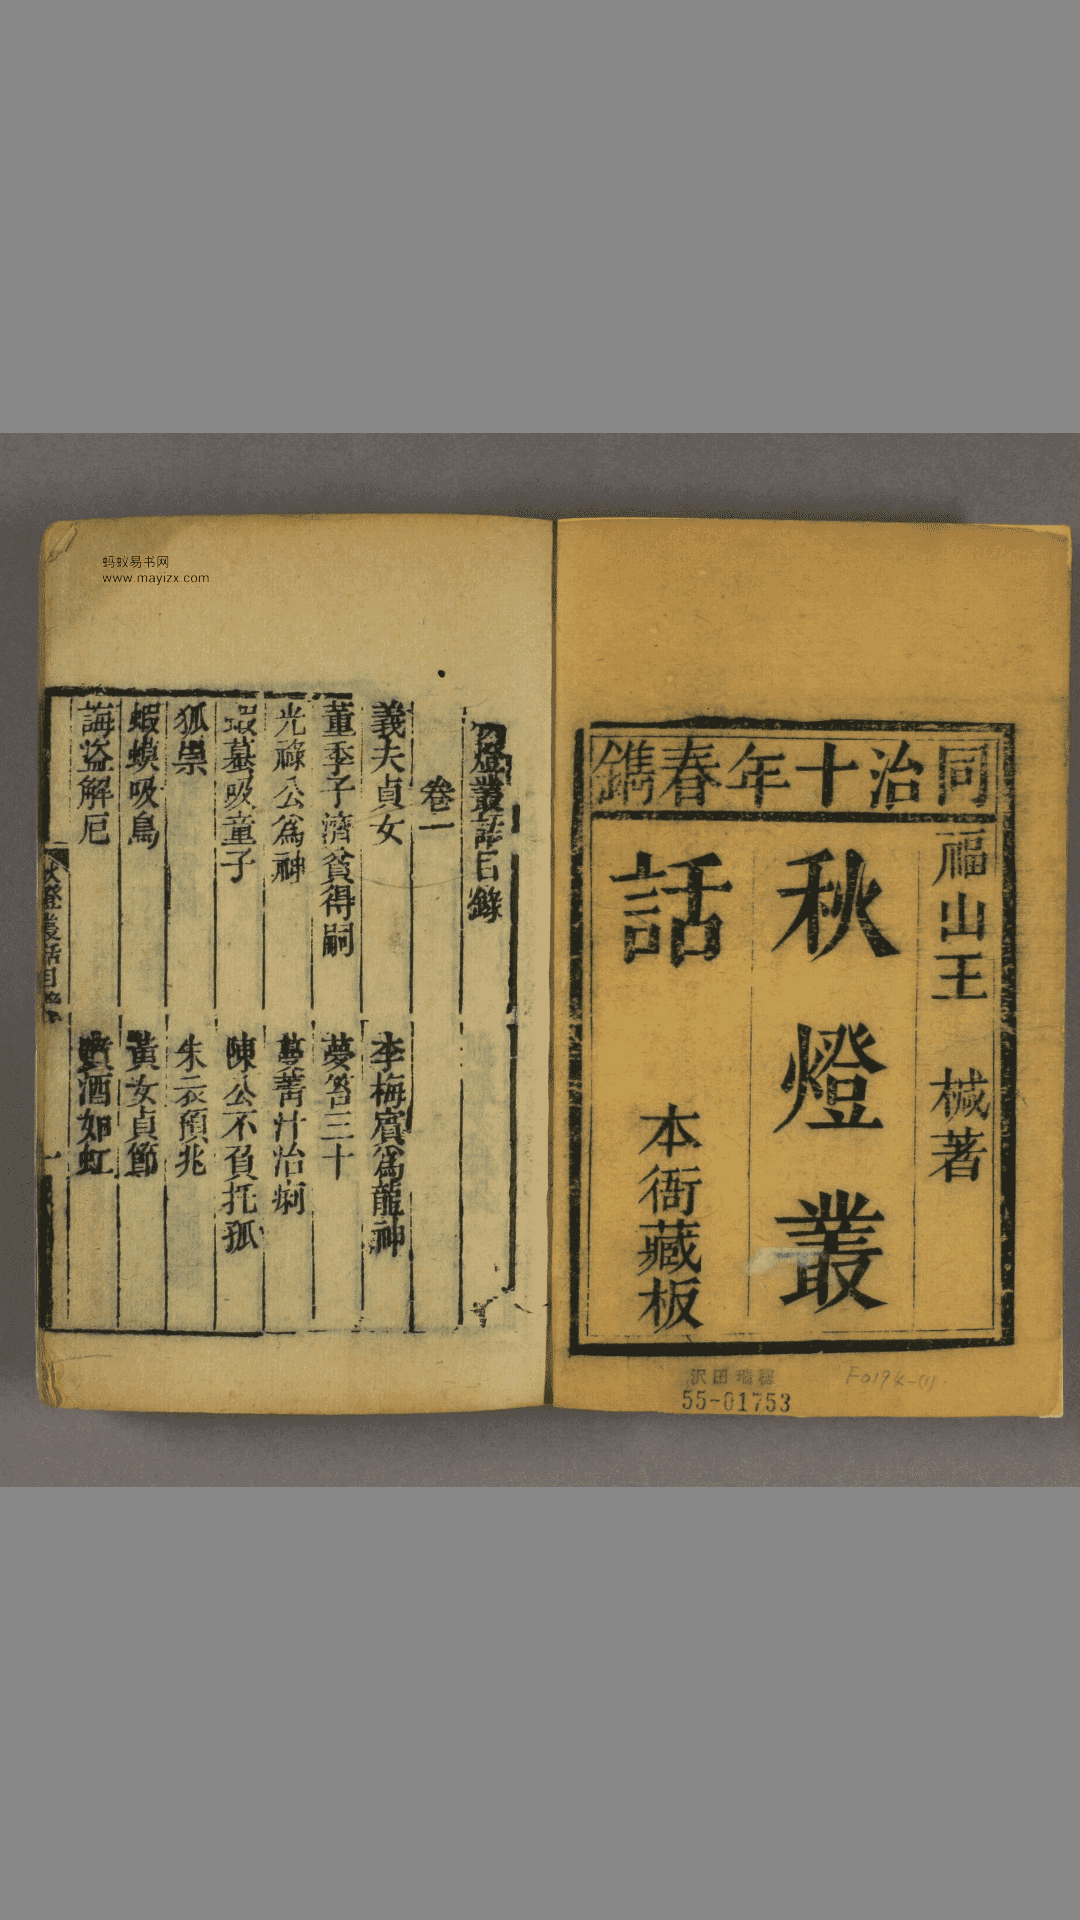 同治十年春鐫
福山王 椷著
秋燈叢
話
本衙藏板
沢田瑞穂
55-01753
蚂蚁易书网
www.mayizx.com
燈叢話目錄
卷一
義夫貞女 李梅賓為龍神
董季子濟貧得嗣 夢筶三十
光祿公爲神 蔓菁汁治痢
蝦蟇吸童子 陳公不負托孤
狐祟 朱衣預兆
蝦蟆吸鳥 黃女貞節
誨盜解厄 噴酒如虹
秋燈叢話目錄
一